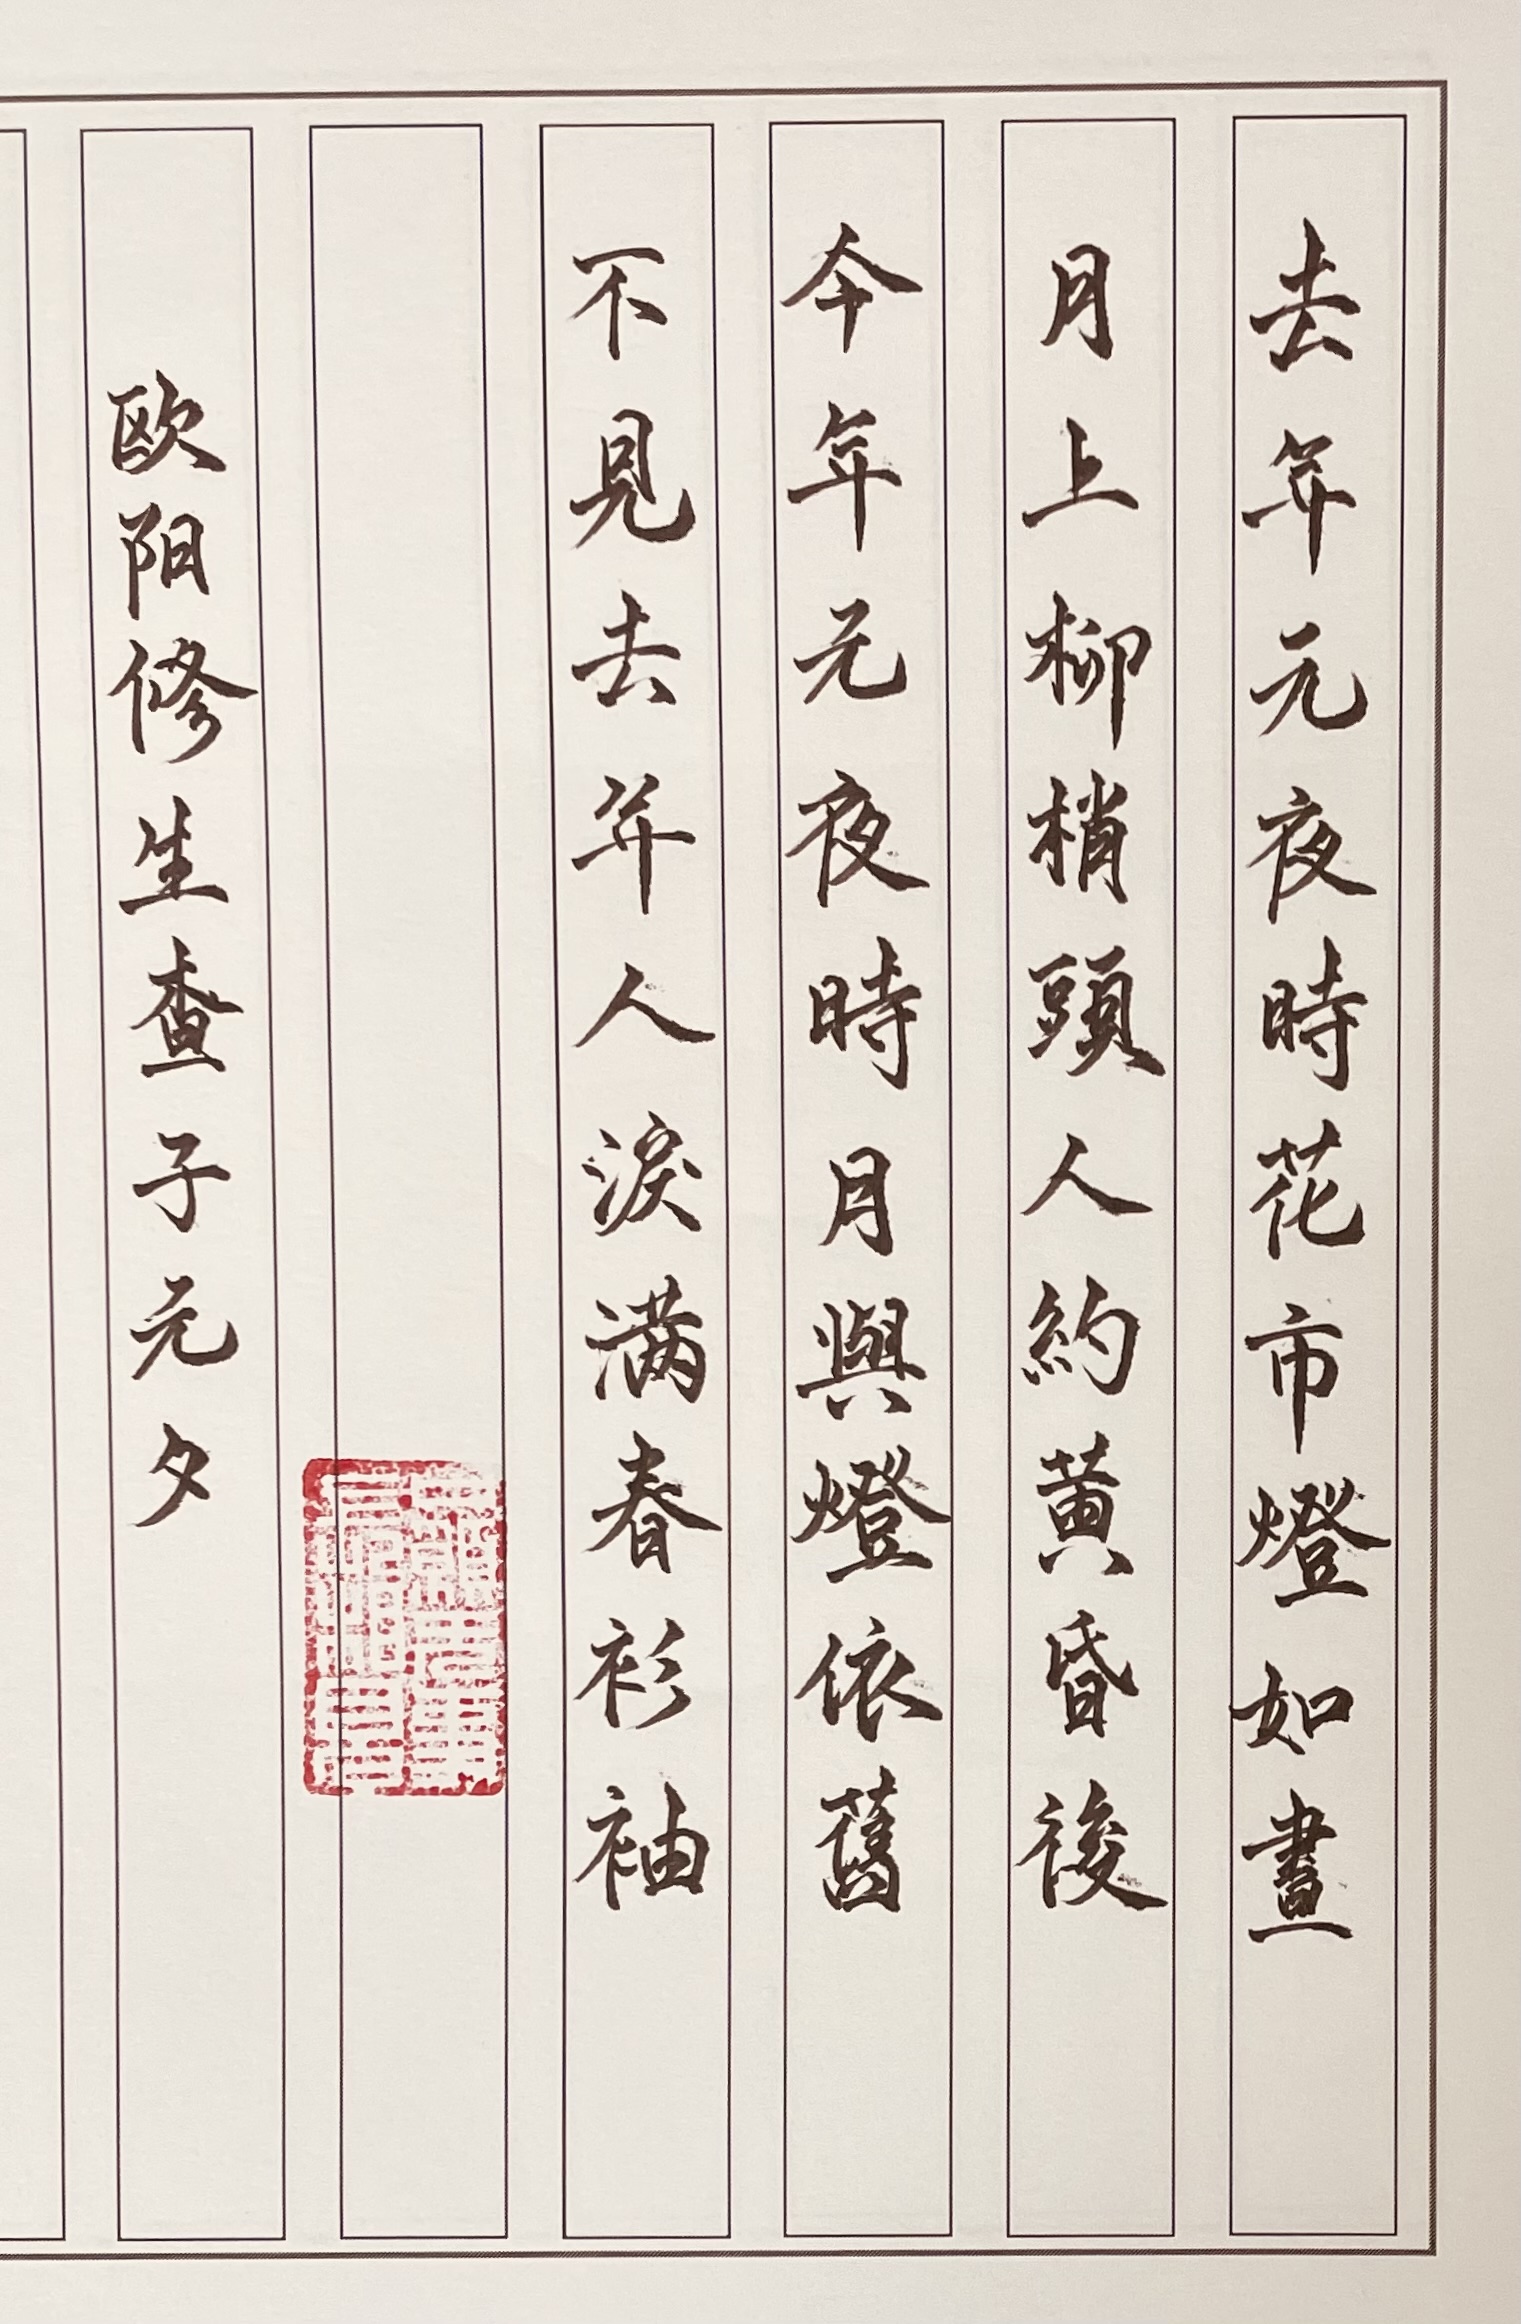 去年元夜時花市燈如晝
月上柳梢頭人約黄昏後
今年元夜時月與燈依舊
不見去年人淚满春衫袖
欧阳修生查子元夕